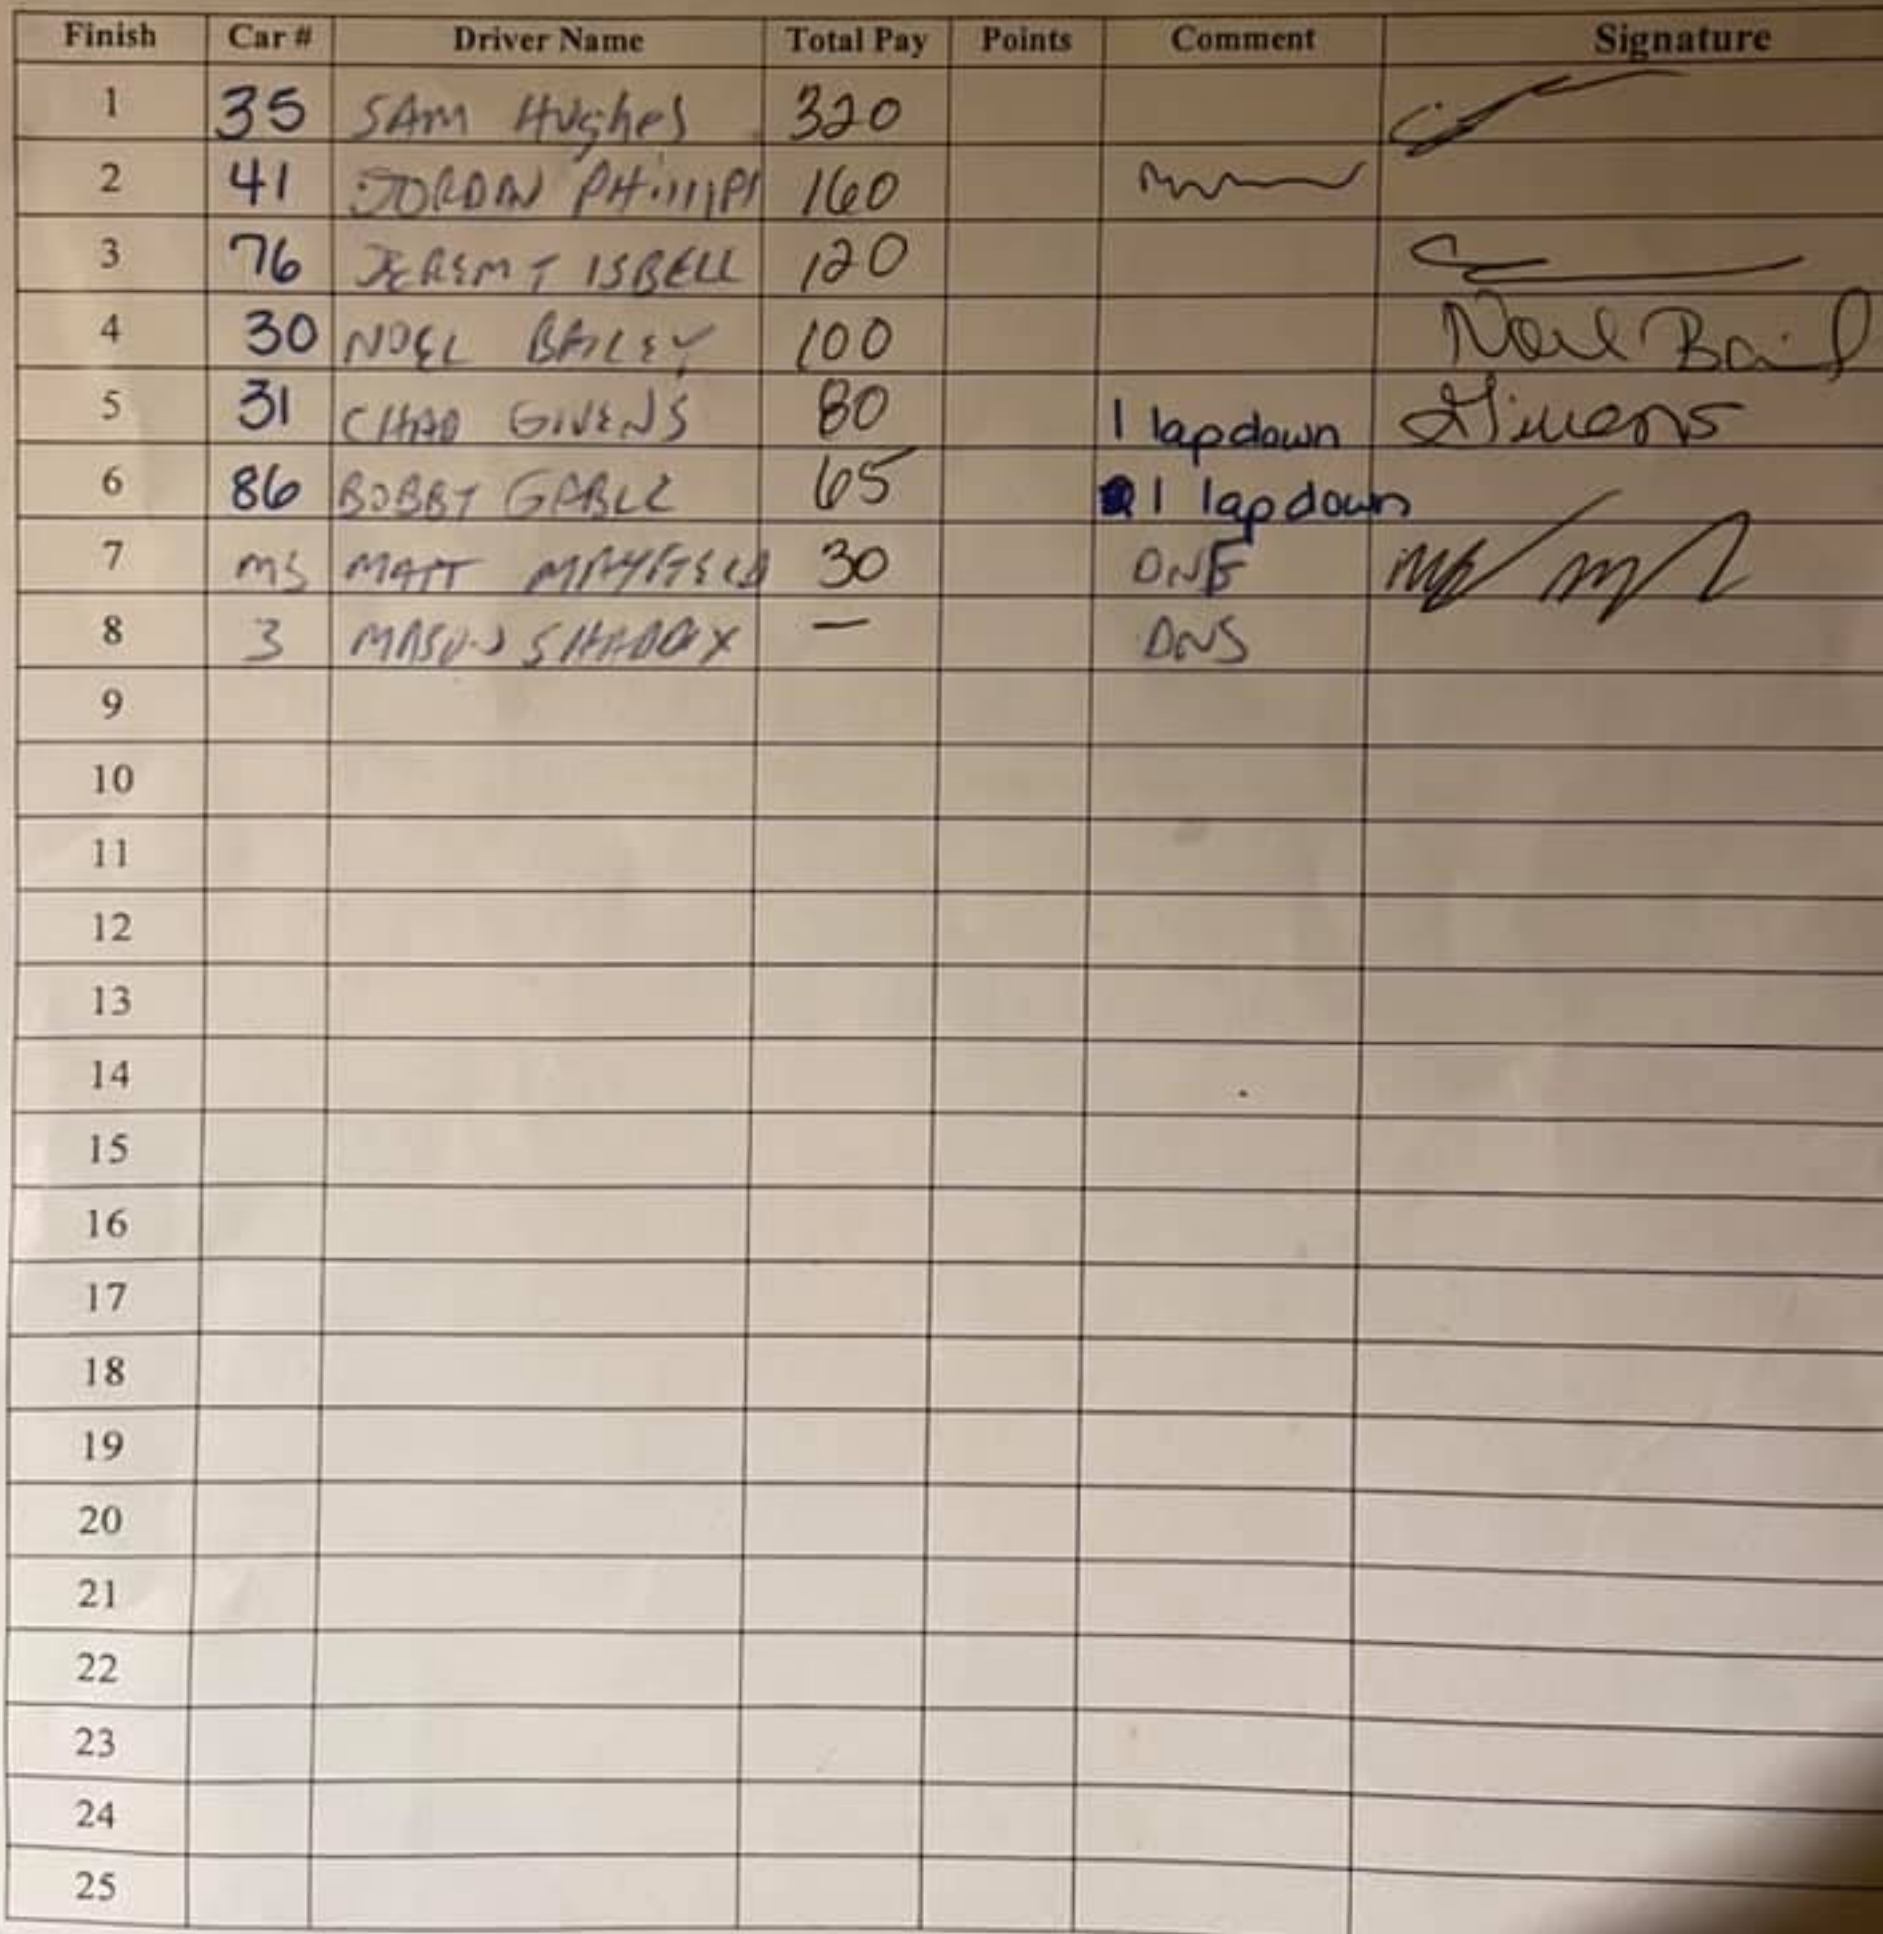 Finish Car # Driver Name Total Pay Points Comment Signature
1 35 SAM Hughes 320
2 41 JORDAN PHillIPS 160
3 76 JEREMY ISBELL 120
4 30 NOEL BAILEY 100 Noel Bail
5 31 CHAD GIVENS 80 1 lap down Givens
6 86 BOBBY GABLE 65 1 lap down
7 MS MATT MAYFIELD 30 DNF
8 3 MASON SHADDIX — DNS
9
10
11
12
13
14
15
16
17
18
19
20
21
22
23
24
25